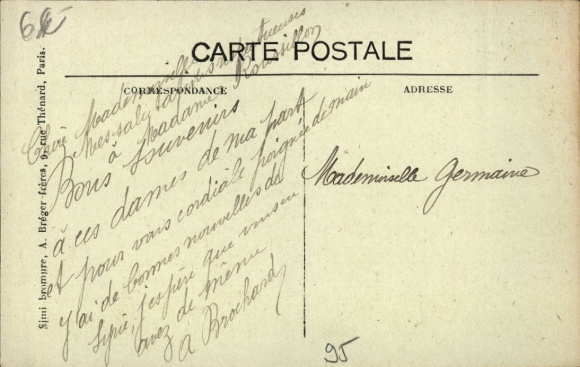 6
CARTE POSTALE
CORRESPONDANCE
ADRESSE
Simi bromure, A. Bréger frères, 9, rue Thénard, Paris.
Chère Mademoiselle
Mes salutations respectueuses
à Madame Roussillon
Bons souvenirs
à ces dames de ma part
et pour vous cordiale poignée de main
J'ai de bonnes nouvelles de
Syrie, j'espère que vous en
avez de même
A Brochard
Mademoiselle Germaine
95